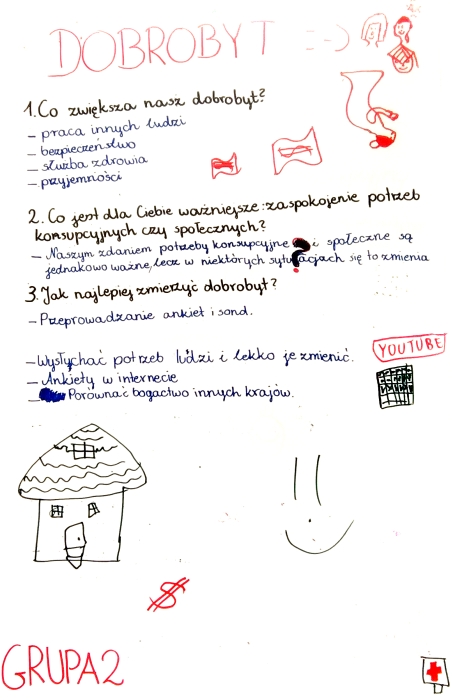 DOBROBYT :-)
1. Co zwiększa nasz dobrobyt?
- praca innych ludzi
- bezpieczeństwo
- służba zdrowia
- przyjemności
2. Co jest dla Ciebie ważniejsze: zaspokojenie potrzeb
konsupcyjnych czy społecznych?
- Naszym zdaniem potrzeby konsupcyjne i społeczne są
jednakowo ważne, lecz w niektórych sytuacjach się to zmienia
3. Jak najlepiej zmierzyć dobrobyt?
- Przeprowadzanie ankiet i sond.
- Wysłychać potrzeb ludzi i lekko je zmienić.
YOUTUBE
- Ankiety w internecie
- Porównać bogactwo innych krajów.
$
GRUPA 2